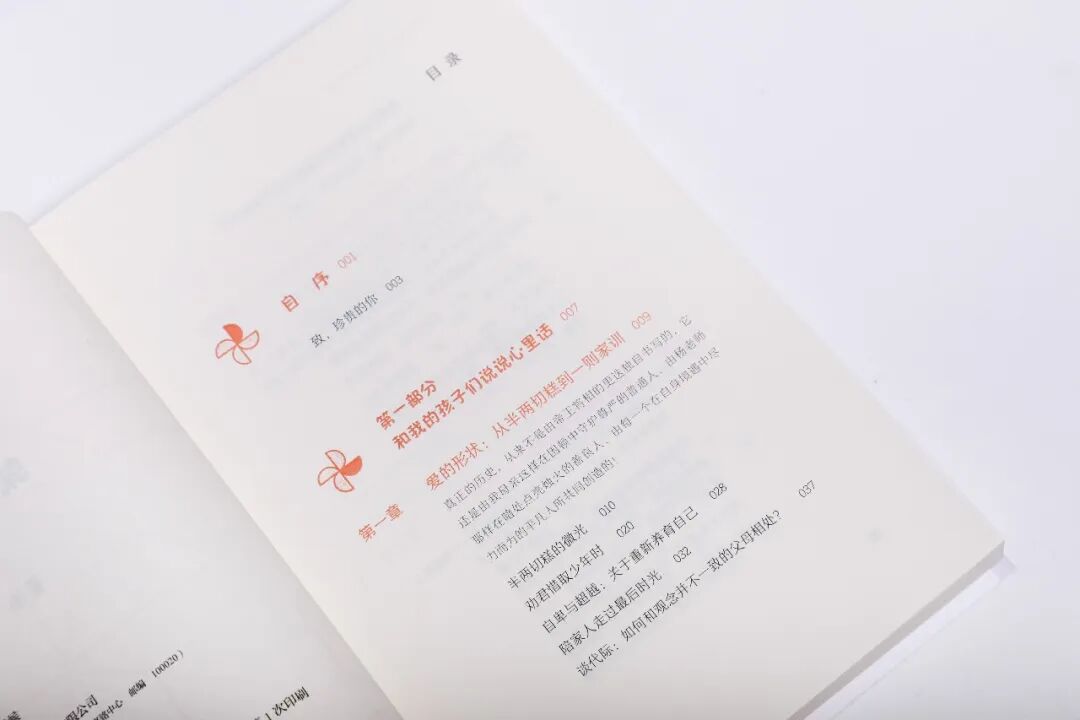 目 录
自 序 001
致，珍贵的你 003
第一部分
和我的孩子们说说心里话 007
第一章 爱的形状：从半两切糕到一则家训 009
真正的历史，从来不是由帝王将相的更迭独自书写的，它
还是由我母亲这样在困顿中守护尊严的普通人、由杨老师
那样在暗处点亮烛火的善良人、由每一个在自身境遇中尽
力而为的平凡人所共同创造的！
半两切糕的微光 010
劝君惜取少年时 020
自卑与超越：关于重新养育自己 028
陪家人走过最后时光 032
谈代际：如何和观念并不一致的父母相处？ 037
邮编 100020）
限公司
次印刷